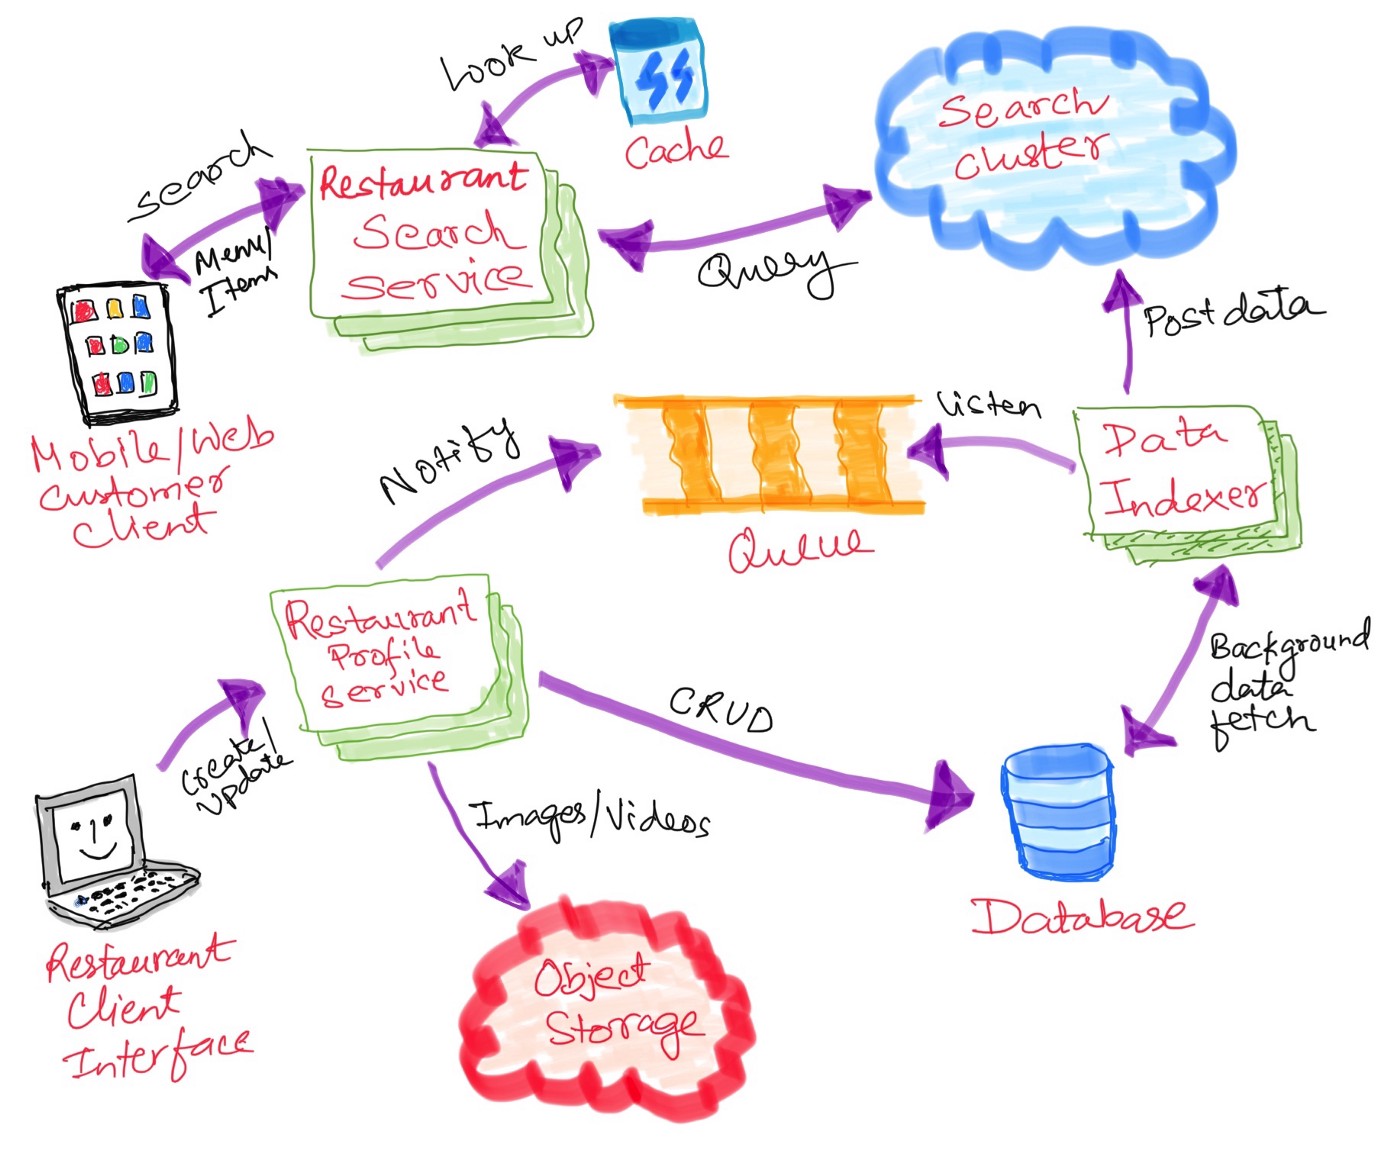 Look up
Cache
Search
Cluster
search
Menu/
Items
Restaurant
Search
Service
Query
Post data
Mobile/Web
Customer
Client
Notify
Queue
listen
Data
Indexer
Restaurant
Profile
Service
Create/
Update
CRUD
Background
data
fetch
Images/Videos
Database
Restaurant
Client
Interface
Object
Storage